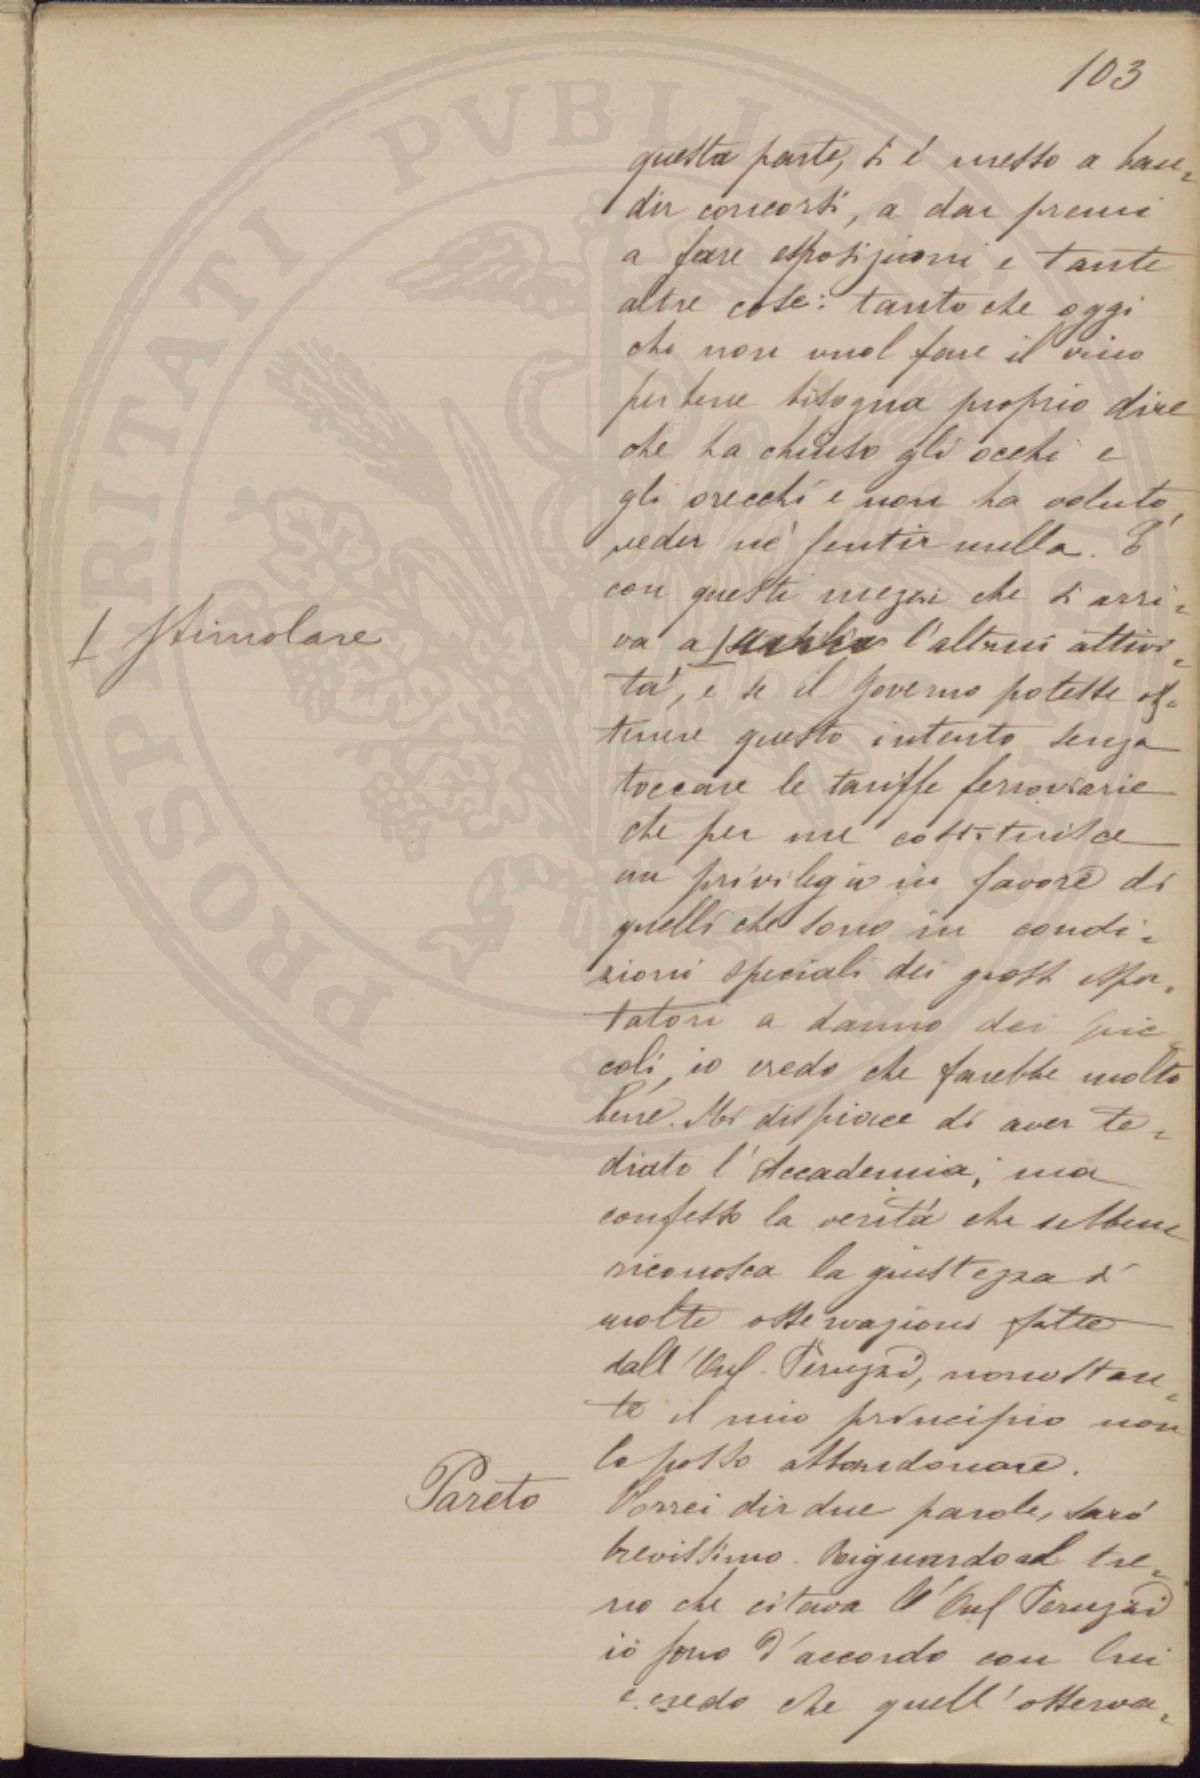 103
questa parte, si è messo a ban-
dir concorsi, a dar premi
a fare esposizioni e tante
altre cose: tanto che oggi
chi non vuol fare il vino
per bene bisogna proprio dire
che ha chiuso gli occhi e
gli orecchi e non ha voluto
veder nè sentir nulla. È
con questi mezzi che si arri-
va a l'altrui attivi-
Stimolare
tà, e se il Governo potesse ot-
tenere questo intento senza
toccare le tariffe ferroviarie
che per me costituisce
un privilegio in favore di
quelli che sono in condi-
zioni speciali dei grossi espor-
tatori a danno dei pic-
coli, io credo che farebbe molto
bene. Mi dispiace di aver te-
diato l'Accademia; ma
confesso la verità che sebbene
riconosca la giustezza di
molte osservazioni fatte
dall'Onl. Peruzzi, nonostan-
te il mio principio non
lo posso abbandonare.
Pareto
Vorrei dir due parole, sarò
brevissimo. Riguardo al tre-
no che citava l'Onl Peruzzi
io sono d'accordo con lui
e credo che quell'osserva-
PROSPERITATI PVBLICAE